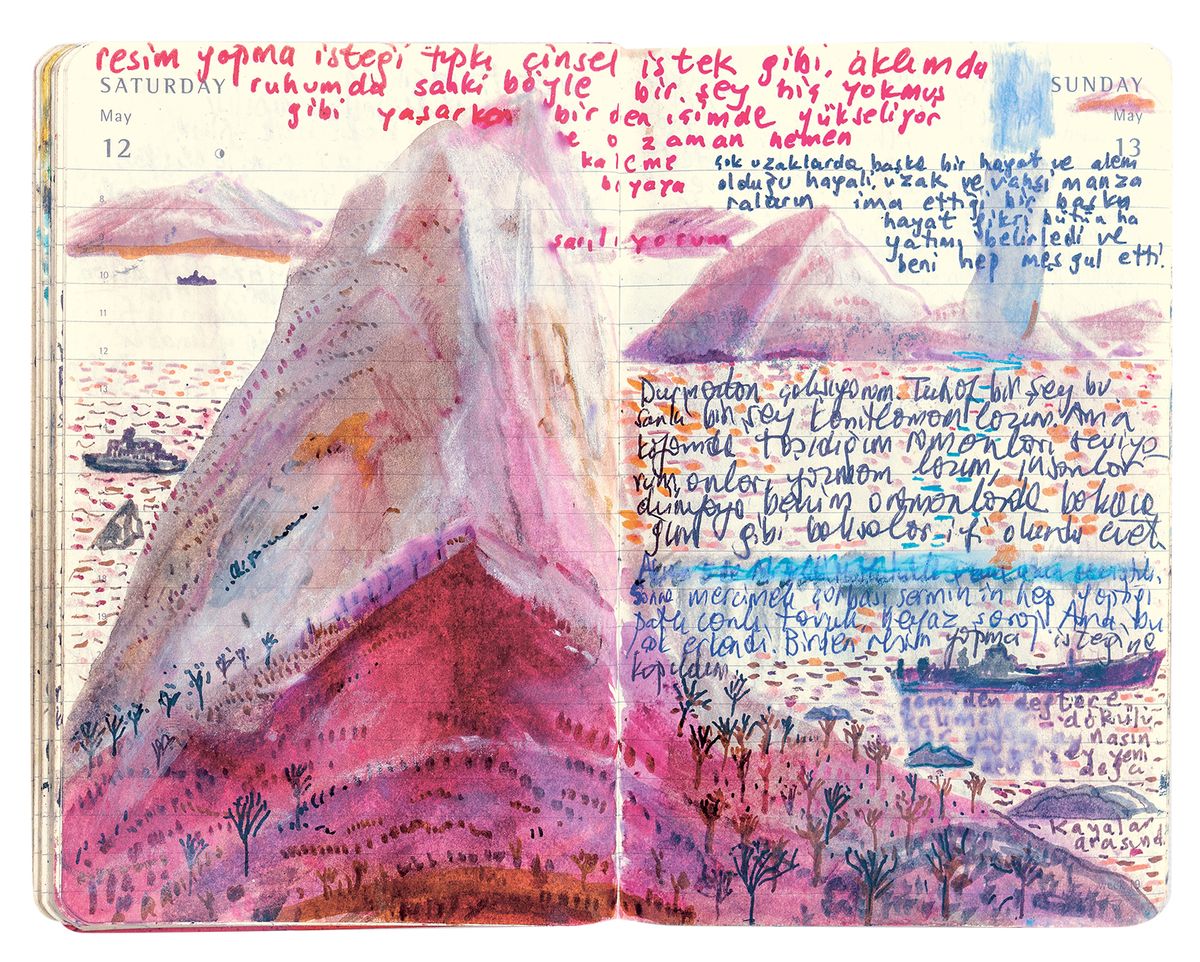 resim yapma isteği tıpkı cinsel istek gibi, aklımda
SATURDAY
ruhumda sanki böyle bir şey hiç yokmuş
May
gibi yaşarken birden içimde yükseliyor
12
ve o zaman hemen
kaleme
bıyaya
sarılıyorum
8
9
10
11
12
13
18
19
SUNDAY
May
13
çok uzaklarda başka bir hayat ve alem
olduğu hayali, uzak ve vahşi manza
raların ima ettiği bir başka
hayat fikri bütün ha
yatımı belirledi ve
beni hep meşgul etti.
Durmadan çalışıyorum. Tuhaf bir şey bu
sanki bir şey kanıtlamam lazım. Ama
kafamda taşıdığım romanları seviyo
rum, onları yazmam lazım, insanlar
dünyaya benim ormanlarda
gibi baksalar iyi olurdu evet
mercimek çorbası hep yaptığı
patlıcanlı tavuk beyaz Ama bu
Birden resim yapma isteğine
kapıldım
gemiden deftere
kelimeler dökülü
yeni
Kayalar
arasınd
week 19